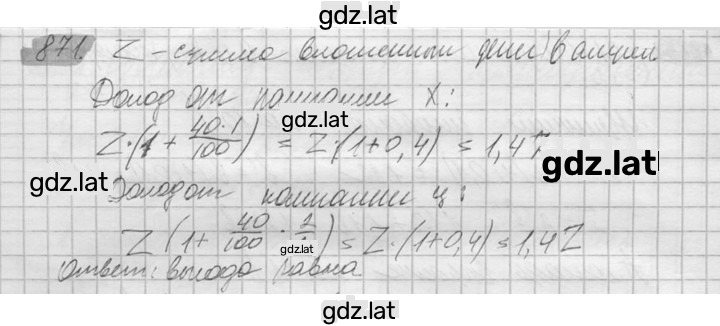 gdz.lat
871. Z - сумма вложенных денег в акции
Доход от компании X:
gdz.lat
Z·(1 + 40·1/100) = Z·(1+0,4) = 1,4Z
gdz.lat
gdz.lat
Доход от компании У:
Z (1 + 40/100 · 1/1) = Z·(1+0,4) = 1,4Z
gdz.lat
Ответ: выгода равна
gdz.lat